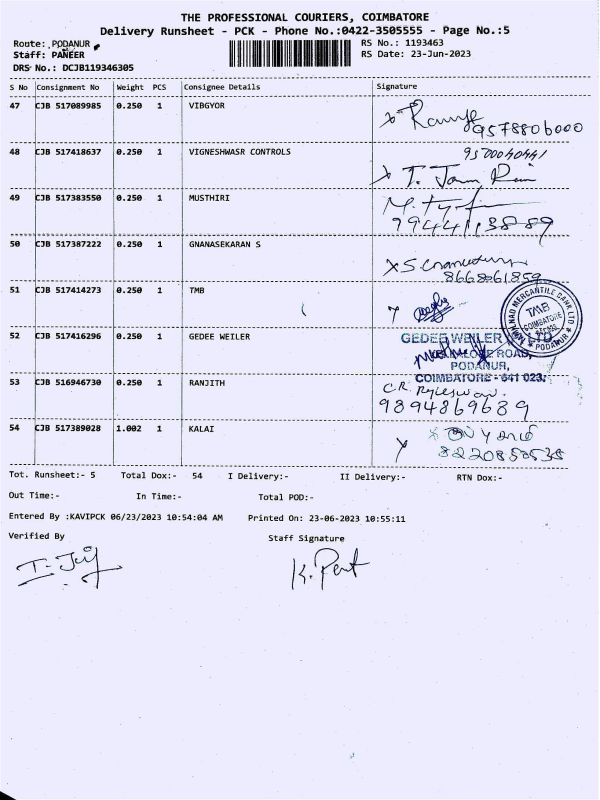 THE PROFESSIONAL COURIERS, COIMBATORE
Delivery Runsheet - PCK - Phone No.:0422-3505555 - Page No.:5
Route: PODANUR RS No.: 1193463
Staff: PANEER RS Date: 23-Jun-2023
DRS No.: DCJB119346305
S No Consignment No Weight PCS Consignee Details Signature
47 CJB 517089985 0.250 1 VIBGYOR
9578806000
48 CJB 517418637 0.250 1 VIGNESHWASR CONTROLS
9500040441
49 CJB 517383550 0.250 1 MUSTHIRI
9944113889
50 CJB 517387222 0.250 1 GNANASEKARAN S
8668061859
51 CJB 517414273 0.250 1 TMB
TAMILNAD MERCANTILE BANK LTD
TMB
COIMBATORE
PODANUR
52 CJB 517416296 0.250 1 GEDEE WEILER
GEDEE WEILER LTD.
ROAD,
PODANUR,
COIMBATORE - 641 023.
53 CJB 516946730 0.250 1 RANJITH
9894869689
54 CJB 517389028 1.002 1 KALAI
8220850538
Tot. Runsheet:- 5 Total Dox:- 54 I Delivery:- II Delivery:- RTN Dox:-
Out Time:- In Time:- Total POD:-
Entered By :KAVIPCK 06/23/2023 10:54:04 AM Printed On: 23-06-2023 10:55:11
Verified By Staff Signature